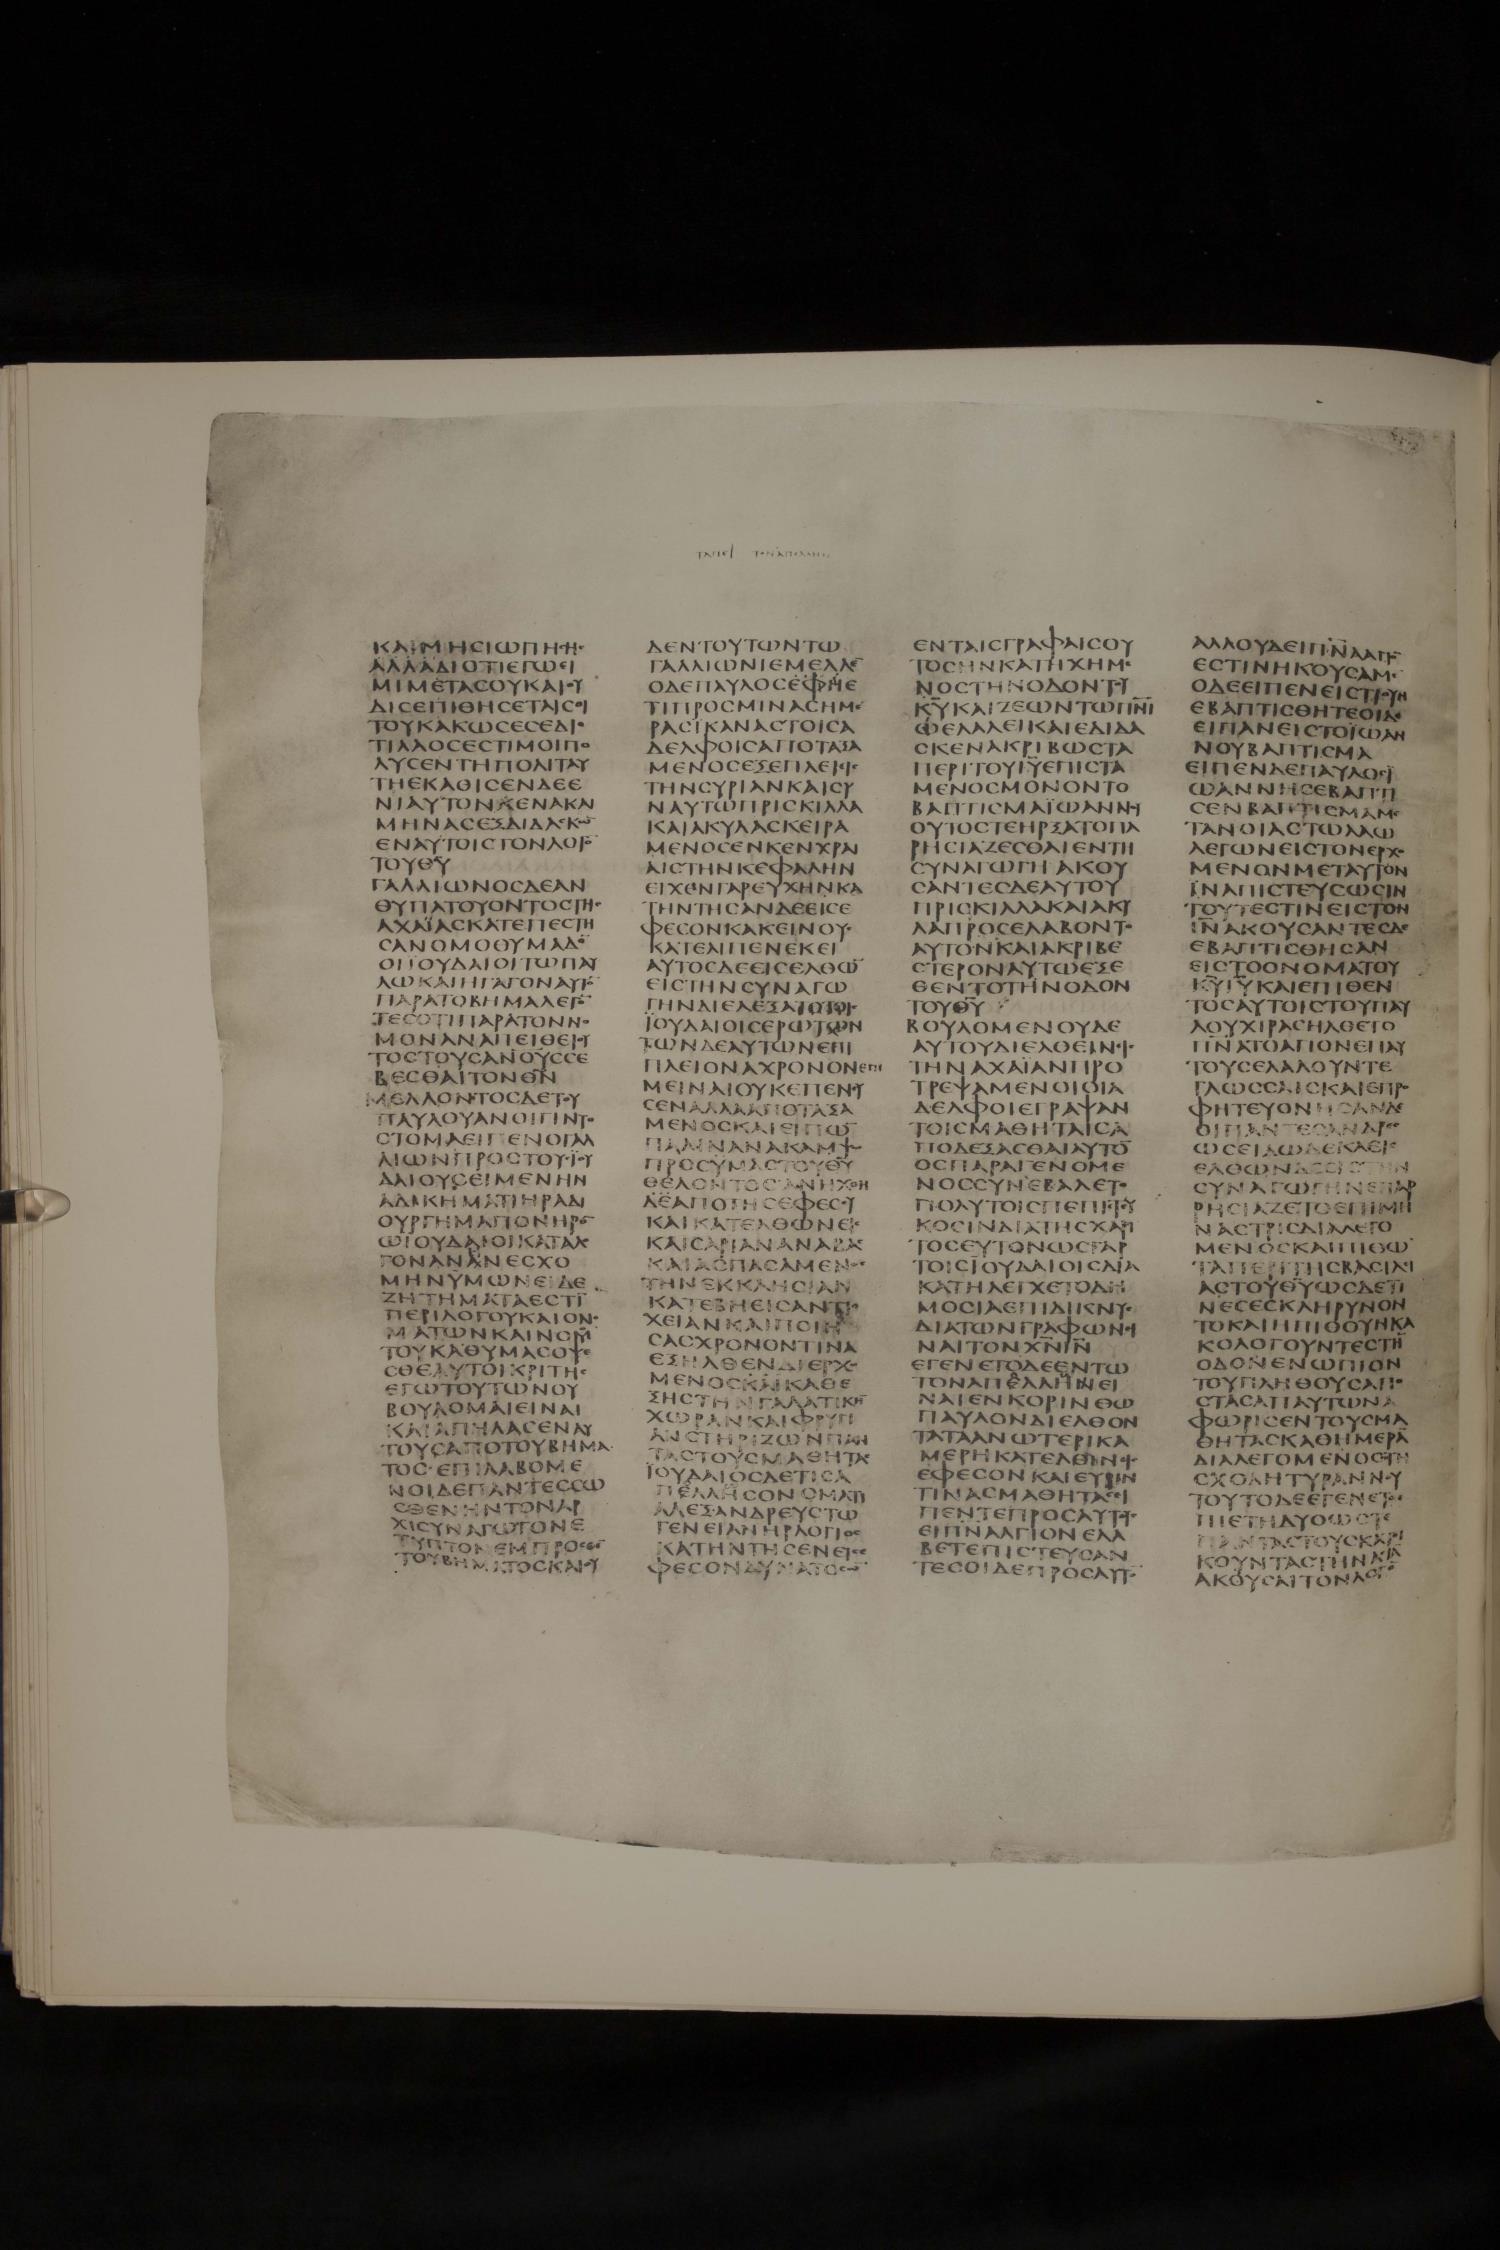 ΚΑΙΜΗCΙΩΠΗCΗC
ΑΛΛΑΔΙΟΤΙΕΓΩΕΙ
ΜΙΜΕΤΑCΟΥΚΑΙΟΥ
ΔΙCΕΠΙΘΗCΕΤΑΙCΟΙ
ΤΟΥΚΑΚΩCΕCΕΔΙΟ
ΤΙΛΑΟCΕCΤΙΜΟΙΠΟ
ΛΥCΕΝΤΗΠΟΛΙΤΑΥ
ΤΗΕΚΑΘΙCΕΝΔΕΕ
ΝΙΑΥΤΟΝΚΕΝΑΚΑΙ
ΜΗΝΑCΕΞΔΙΔΑCΚΩ
ΕΝΑΥΤΟΙCΤΟΝΛΟΓΟ̅
ΤΟΥΘ̅Υ̅
ΓΑΛΛΙΩΝΟCΔΕΑΝ
ΘΥΠΑΤΟΥΟΝΤΟCΤΗC
ΑΧΑΪΑCΚΑΤΕΠΕCΤΗ
CΑΝΟΜΟΘΥΜΑΔΟ̅
ΟΙΪΟΥΔΑΙΟΙΤΩΠΑΥ
ΛΩΚΑΙΗΓΑΓΟΝΑΥΤΟ̅
ΠΑΡΑΤΟΒΗΜΑΛΕΓΟ̅
ΤΕCΟΤΙΠΑΡΑΤΟΝΝΟ
ΜΟΝΑΝΑΠΕΙΘΕΙΟΥ
ΤΟCΤΟΥCΑΝΟΥCCΕ
ΒΕCΘΑΙΤΟΝΘ̅Ν̅
ΜΕΛΛΟΝΤΟCΔΕΤΟΥ
ΠΑΥΛΟΥΑΝΟΙΓΙΝΤΟ
CΤΟΜΑΕΙΠΕΝΟΓΑΛ
ΛΙΩΝΠΡΟCΤΟΥCΪΟΥ
ΔΑΙΟΥCΕΙΜΕΝΗΝ
ΑΔΙΚΗΜΑΤΙΗΡΑΔΙ
ΟΥΡΓΗΜΑΠΟΝΗΡΟ̅
ΩΙΟΥΔΑΙΟΙΚΑΤΑΛΟ
ΓΟΝΑΝΑΝΕCΧΟ
ΜΗΝΥΜΩΝΕΙΔΕ
ΖΗΤΗΜΑΤΑΕCΤΙ̅
ΠΕΡΙΛΟΓΟΥΚΑΙΟΝΟ
ΜΑΤΩΝΚΑΙΝΟΜΟΥ
ΤΟΥΚΑΘΥΜΑCΟΨΕ
CΘΕΑΥΤΟΙΚΡΙΤΗC
ΕΓΩΤΟΥΤΩΝΟΥ
ΒΟΥΛΟΜΑΙΕΙΝΑΙ
ΚΑΙΑΠΗΛΑCΕΝΑΥ
ΤΟΥCΑΠΟΤΟΥΒΗΜΑ
ΤΟC·ΕΠΙΛΑΒΟΜΕ
ΝΟΙΔΕΠΑΝΤΕCCΩ
CΘΕΝΗΝΤΟΝΑΡ
ΧΙCΥΝΑΓΩΓΟΝΕ
ΤΥΠΤΟΝΕΜΠΡΟCΘΕ̅
ΤΟΥΒΗΜΑΤΟCΚΑΙΟΥ
ΔΕΝΤΟΥΤΩΝΤΩ
ΓΑΛΛΙΩΝΙΕΜΕΛΛΕ̅
ΟΔΕΠΑΥΛΟCΕΦΗΕ
ΤΙΠΡΟCΜΙΝΑCΗΜΕ
ΡΑCΪΚΑΝΑCΤΟΙCΑ
ΔΕΛΦΟΙCΑΠΟΤΑΞΑ
ΜΕΝΟCΕΞΕΠΛΕΙΕΙC
ΤΗΝCΥΡΙΑΝΚΑΙCΥ
ΝΑΥΤΩΠΡΙCΚΙΛΛΑ
ΚΑΙΑΚΥΛΑCΚΕΙΡΑ
ΜΕΝΟCΕΝΚΕΝΧΡΑΙ
ΑΙCΤΗΝΚΕΦΑΛΗΝ
ΕΙΧΕΝΓΑΡΕΥΧΗΝΚΑ
ΤΗΝΤΗCΑΝΔΕΕΙCΕ
ΦΕCΟΝΚΑΚΕΙΝΟΥC
ΚΑΤΕΛΙΠΕΝΕΚΕΙ
ΑΥΤΟCΔΕΕΙCΕΛΘΩ̅
ΕΙCΤΗΝCΥΝΑΓΩ
ΓΗΝΔΙΕΛΕΞΑΤΟΤΟΙC
ΪΟΥΔΑΙΟΙCΕΡΩΤΩΝ
ΤΩΝΔΕΑΥΤΩΝΕΠΙ
ΠΛΕΙΟΝΑΧΡΟΝΟΝΕΠΙ
ΜΕΙΝΑΙΟΥΚΕΠΕΝΕΥ
CΕΝΑΛΛΑΑΠΟΤΑΞΑ
ΜΕΝΟCΚΑΙΕΙΠΩ̅
ΠΑΛΙΝΑΝΑΚΑΜΨΩ
ΠΡΟCΥΜΑCΤΟΥΘ̅Υ̅
ΘΕΛΟΝΤΟCΑΝΗΧΘΗ
ΔΕΑΠΟΤΗCΕΦΕCΟΥ
ΚΑΙΚΑΤΕΛΘΩΝΕΙC
ΚΑΙCΑΡΙΑΝΑΝΑΒΑC
ΚΑΙΑCΠΑCΑΜΕΝΟC
ΤΗΝΕΚΚΛΗCΙΑΝ
ΚΑΤΕΒΗΕΙCΑΝΤΙΟ
ΧΕΙΑΝΚΑΙΠΟΙΗ
CΑCΧΡΟΝΟΝΤΙΝΑ
ΕΞΗΛΘΕΝΔΙΕΡΧΟ
ΜΕΝΟCΚΑΙΚΑΘΕ
ΞΗCΤΗΝΓΑΛΑΤΙΚΗ̅
ΧΩΡΑΝΚΑΙΦΡΥΓΙ
ΑΝCΤΗΡΙΖΩΝΠΑΝ
ΤΑCΤΟΥCΜΑΘΗΤΑC
ΪΟΥΔΑΙΟCΔΕΤΙCΑ
ΠΕΛΛΗCΟΝΟΜΑΤΙ
ΑΛΕΞΑΝΔΡΕΥCΤΩ
ΓΕΝΕΙΑΝΗΡΛΟΓΙΟC
ΚΑΤΗΝΤΗCΕΝΕΙCΕ
ΦΕCΟΝΔΥΝΑΤΟCΩ̅
ΕΝΤΑΙCΓΡΑΦΑΙCΟΥ
ΤΟCΗΝΚΑΤΗΧΗΜΕ
ΝΟCΤΗΝΟΔΟΝΤΟΥ
Κ̅Υ̅ΚΑΙΖΕΩΝΤΩΠ̅Ν̅Ι̅
ΕΛΑΛΕΙΚΑΙΕΔΙΔΑ
CΚΕΝΑΚΡΙΒΩCΤΑ
ΠΕΡΙΤΟΥΙ̅Υ̅ΕΠΙCΤΑ
ΜΕΝΟCΜΟΝΟΝΤΟ
ΒΑΠΤΙCΜΑΪΩΑΝΝΟΥ
ΟΥΤΟCΤΕΗΡΞΑΤΟΠΑ
ΡΗCΙΑΖΕCΘΑΙΕΝΤΗ
CΥΝΑΓΩΓΗΑΚΟΥ
CΑΝΤΕCΔΕΑΥΤΟΥ
ΠΡΙCΚΙΛΛΑΚΑΙΑΚΥ
ΛΑΠΡΟCΕΛΑΒΟΝΤΟ
ΑΥΤΟΝΚΑΙΑΚΡΙΒΕ
CΤΕΡΟΝΑΥΤΩΕΞΕ
ΘΕΝΤΟΤΗΝΟΔΟΝ
ΤΟΥΘ̅Υ̅
ΒΟΥΛΟΜΕΝΟΥΔΕ
ΑΥΤΟΥΔΙΕΛΘΕΙΝΕΙC
ΤΗΝΑΧΑΪΑΝΠΡΟ
ΤΡΕΨΑΜΕΝΟΙΟΙΑ
ΔΕΛΦΟΙΕΓΡΑΨΑΝ
ΤΟΙCΜΑΘΗΤΑΙCΑ
ΠΟΔΕΞΑCΘΑΙΑΥΤΟ̅
ΟCΠΑΡΑΓΕΝΟΜΕ
ΝΟCCΥΝΕΒΑΛΕΤΟ
ΠΟΛΥΤΟΙCΠΕΠΙCΤΕΥ
ΚΟCΙΝΔΙΑΤΗCΧΑΡΙ
ΤΟCΕΥΤΟΝΩCΓΑΡ
ΤΟΙCΪΟΥΔΑΙΟΙCΔΙΑ
ΚΑΤΗΛΕΓΧΕΤΟΔΗ
ΜΟCΙΑΕΠΙΔΙΚΝΥC
ΔΙΑΤΩΝΓΡΑΦΩΝΕΙ
ΝΑΙΤΟΝΧ̅Ν̅Ι̅Ν̅
ΕΓΕΝΕΤΟΔΕΕΝΤΩ
ΤΟΝΑΠΕΛΛΗΝΕΙ
ΝΑΙΕΝΚΟΡΙΝΘΩ
ΠΑΥΛΟΝΔΙΕΛΘΟΝ
ΤΑΤΑΑΝΩΤΕΡΙΚΑ
ΜΕΡΗΚΑΤΕΛΘΙΝΕΙC
ΕΦΕCΟΝΚΑΙΕΥΡΙΝ
ΤΙΝΑCΜΑΘΗΤΑCΕΙ
ΠΕΝΤΕΠΡΟCΑΥΤΟΥC
ΕΙΠ̅Ν̅ΑΑΓΙΟΝΕΛΑ
ΒΕΤΕΠΙCΤΕΥCΑΝ
ΤΕCΟΙΔΕΠΡΟCΑΥΤΟ̅
ΑΛΛΟΥΔΕΙΠ̅Ν̅ΑΑΓΙΟ̅
ΕCΤΙΝΗΚΟΥCΑΜΕ
ΟΔΕΕΙΠΕΝΕΙCΤΙΟΥΝ
ΕΒΑΠΤΙCΘΗΤΕΟΙΔΕ
ΕΙΠΑΝΕΙCΤΟΪΩΑΝ
ΝΟΥΒΑΠΤΙCΜΑ
ΕΙΠΕΝΔΕΠΑΥΛΟCΪ
ΩΑΝΝΗCΕΒΑΠΤΙ
CΕΝΒΑΠΤΙCΜΑΜΕ
ΤΑΝΟΙΑCΤΩΛΑΩ
ΛΕΓΩΝΕΙCΤΟΝΕΡΧΟ
ΜΕΝΟΝΜΕΤΑΥΤΟΝ
ΪΝΑΠΙCΤΕΥCΩCΙΝ
ΤΟΥΤΕCΤΙΝΕΙCΤΟΝ
Ι̅Ν̅ΑΚΟΥCΑΝΤΕCΔΕ
ΕΒΑΠΤΙCΘΗCΑΝ
ΕΙCΤΟΟΝΟΜΑΤΟΥ
Κ̅Υ̅Ι̅Υ̅ΚΑΙΕΠΙΘΕΝ
ΤΟCΑΥΤΟΙCΤΟΥΠΑΥ
ΛΟΥΧΙΡΑCΗΛΘΕΤΟ
Π̅Ν̅ΑΤΟΑΓΙΟΝΕΠΑΥ
ΤΟΥCΕΛΑΛΟΥΝΤΕ
ΓΛΩCCΑΙCΚΑΙΕΠΡΟ
ΦΗΤΕΥΟΝΗCΑΝΔΕ
ΟΙΠΑΝΤΕCΑΝΔΡΕC
ΩCΕΙΔΩΔΕΚΑΕΙC
ΕΛΘΩΝΔΕΕΙCΤΗΝ
CΥΝΑΓΩΓΗΝΕΠΑΡ
ΡΗCΙΑΖΕΤΟΕΠΙΜΗ
ΝΑCΤΡΙCΔΙΑΛΕΓΟ
ΜΕΝΟCΚΑΙΠΙΘΩ̅
ΤΑΠΕΡΙΤΗCΒΑCΙΛΕΙ
ΑCΤΟΥΘ̅Υ̅ΩCΔΕΤΙ
ΝΕCΕCΚΛΗΡΥΝΟΝ
ΤΟΚΑΙΗΠΙΘΟΥΝΚΑ
ΚΟΛΟΓΟΥΝΤΕCΤΗ̅
ΟΔΟΝΕΝΩΠΙΟΝ
ΤΟΥΠΛΗΘΟΥCΑΠΟ
CΤΑCΑΠΑΥΤΩΝΑ
ΦΩΡΙCΕΝΤΟΥCΜΑ
ΘΗΤΑCΚΑΘΗΜΕΡΑ̅
ΔΙΑΛΕΓΟΜΕΝΟCΕΝΤΗ
CΧΟΛΗΤΥΡΑΝΝΟΥ
ΤΟΥΤΟΔΕΕΓΕΝΕΤΟΕ
ΠΙΕΤΗΔΥΟΩCΤΕ
ΠΑΝΤΑCΤΟΥCΚΑΤΟΙ
ΚΟΥΝΤΑCΤΗΝΑCΙΑ̅
ΑΚΟΥCΑΙΤΟΝΛΟΓΟ̅